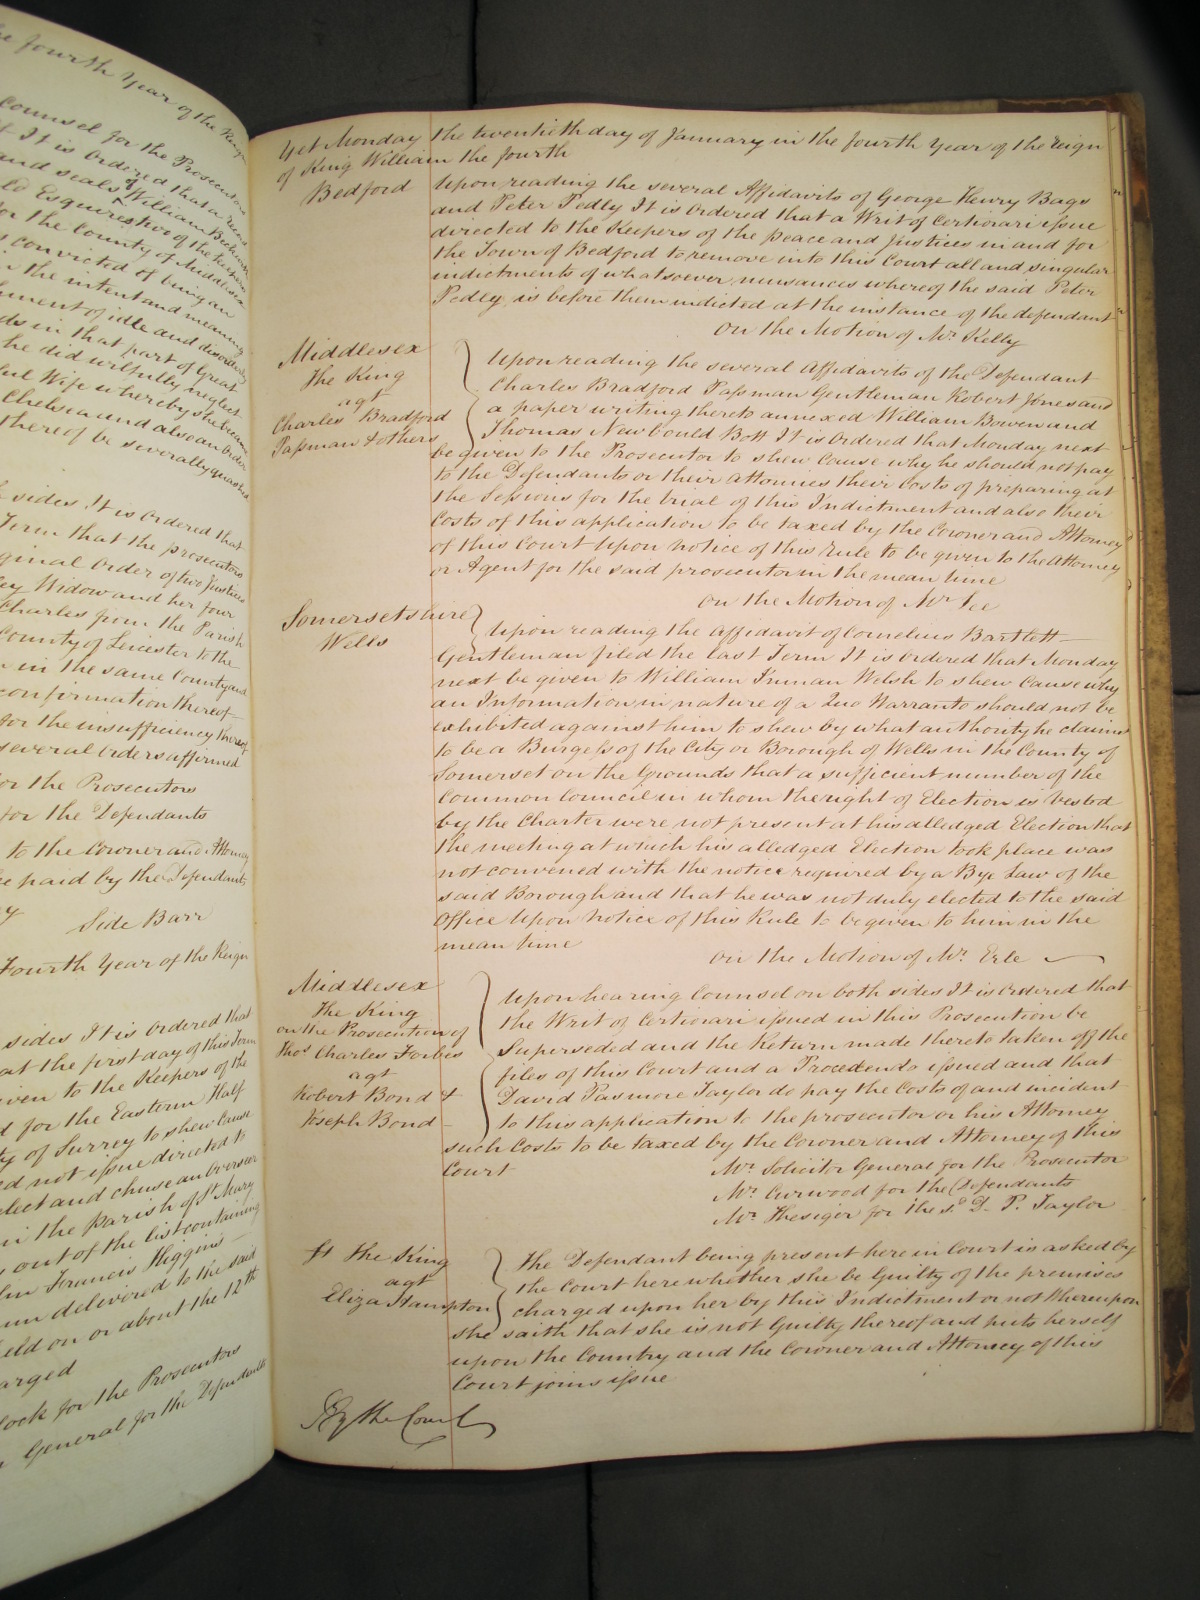 the fourth Year of the Reign
Counsel for the Prosecutors
It is Ordered that a
and seals of William
Esquires two of the
for the County of Middlesex
convicted of being an
the intent and meaning
of idle and disorderly
in that part of Great
he did wilfully neglect
Wife whereby she became
Chelsea and also an Order
thereof be severally quashed
sides It is Ordered that
Term that the prosecutors
Original Order of two Justices
Widow and her four
Charles from the Parish
County of Leicester to the
in the same County and
confirmation thereof
for the insufficiency thereof
several Orders affirmed
for the Prosecutors
for the Defendants
to the Coroner and Attorney
be paid by the Defendants
Side Barr
Fourth Year of the Reign
sides It is Ordered that
at the first day of this Term
given to the Keepers of the
for the Eastern Half
of Surrey to shew Cause
not issue directed to
elect and chuse an Overseer
in the Parish of St. Mary
out of the list containing
Francis Higgins
delivered to the said
held on or about the 12th
for the Prosecutors
General for the Defendants
Yet Monday the twentieth day of January in the fourth Year of the Reign
of King William the fourth
Bedford
Upon reading the several Affidavits of George Henry Bags
and Peter Pedly It is Ordered that a Writ of Certiorari issue
directed to the Keepers of the peace and Justices in and for
the Town of Bedford to remove into this Court all and singular
indictments of whatsoever nuisances whereof the said Peter
Pedly is before them indicted at the instance of the defendant
On the Motion of Mr. Kelly
Middlesex
The King
agt
Charles Bradford
Passman & others
Upon reading the several Affidavits of the Defendant
Charles Bradford Passman Gentleman Robert Jones and
a paper writing thereto annexed William Bowen and
Thomas Newbould Bott It is Ordered that Monday next
be given to the Prosecutor to shew Cause why he should not pay
to the Defendants or their Attornies their Costs of preparing at
the Sessions for the trial of this Indictment and also their
Costs of this application to be taxed by the Coroner and Attorney
of this Court Upon notice of this rule to be given to the Attorney
or Agent for the said prosecutor in the mean time
On the Motion of Mr. Lee
Somersetshire
Wells
Upon reading the Affidavit of Cornelius Bartlett
Gentleman filed the last Term It is Ordered that Monday
next be given to William Inman Welsh to shew Cause why
an Information in nature of a Quo Warranto should not be
exhibited against him to shew by what authority he claims
to be a Burgess of the City or Borough of Wells in the County of
Somerset on the Grounds that a sufficient number of the
Common Council in whom the right of Election is Vested
by the Charter were not present at his alledged Election that
the meeting at which his alledged Election took place was
not convened with the notice required by a Bye Law of the
said Borough and that he was not duly elected to the said
Office Upon notice of this Rule to be given to him in the
mean time
On the Motion of Mr. Erle
Middlesex
The King
on the Prosecution of
Thos Charles Forbes
agt
Robert Bond &
Joseph Bond
Upon hearing Counsel on both sides It is Ordered that
the Writ of Certiorari issued in this Prosecution be
Superseded and the Return made thereto taken off the
files of this Court and a Procedendo issued and that
David Pasmore Taylor do pay the Costs of and incident
to this application to the prosecutor or his Attorney
such Costs to be taxed by the Coroner and Attorney of this
Court
Mr. Solicitor General for the Prosecutor
Mr. Curwood for the Defendants
Mr. Thesiger for the sd. D. P. Taylor
The King
agt
Eliza Hampton
The Defendant being present here in Court is asked by
the Court here whether she be Guilty of the premises
charged upon her by this Indictment or not Whereupon
she saith that she is not Guilty thereof and puts herself
upon the Country and the Coroner and Attorney of this
Court joins issue
By the Court